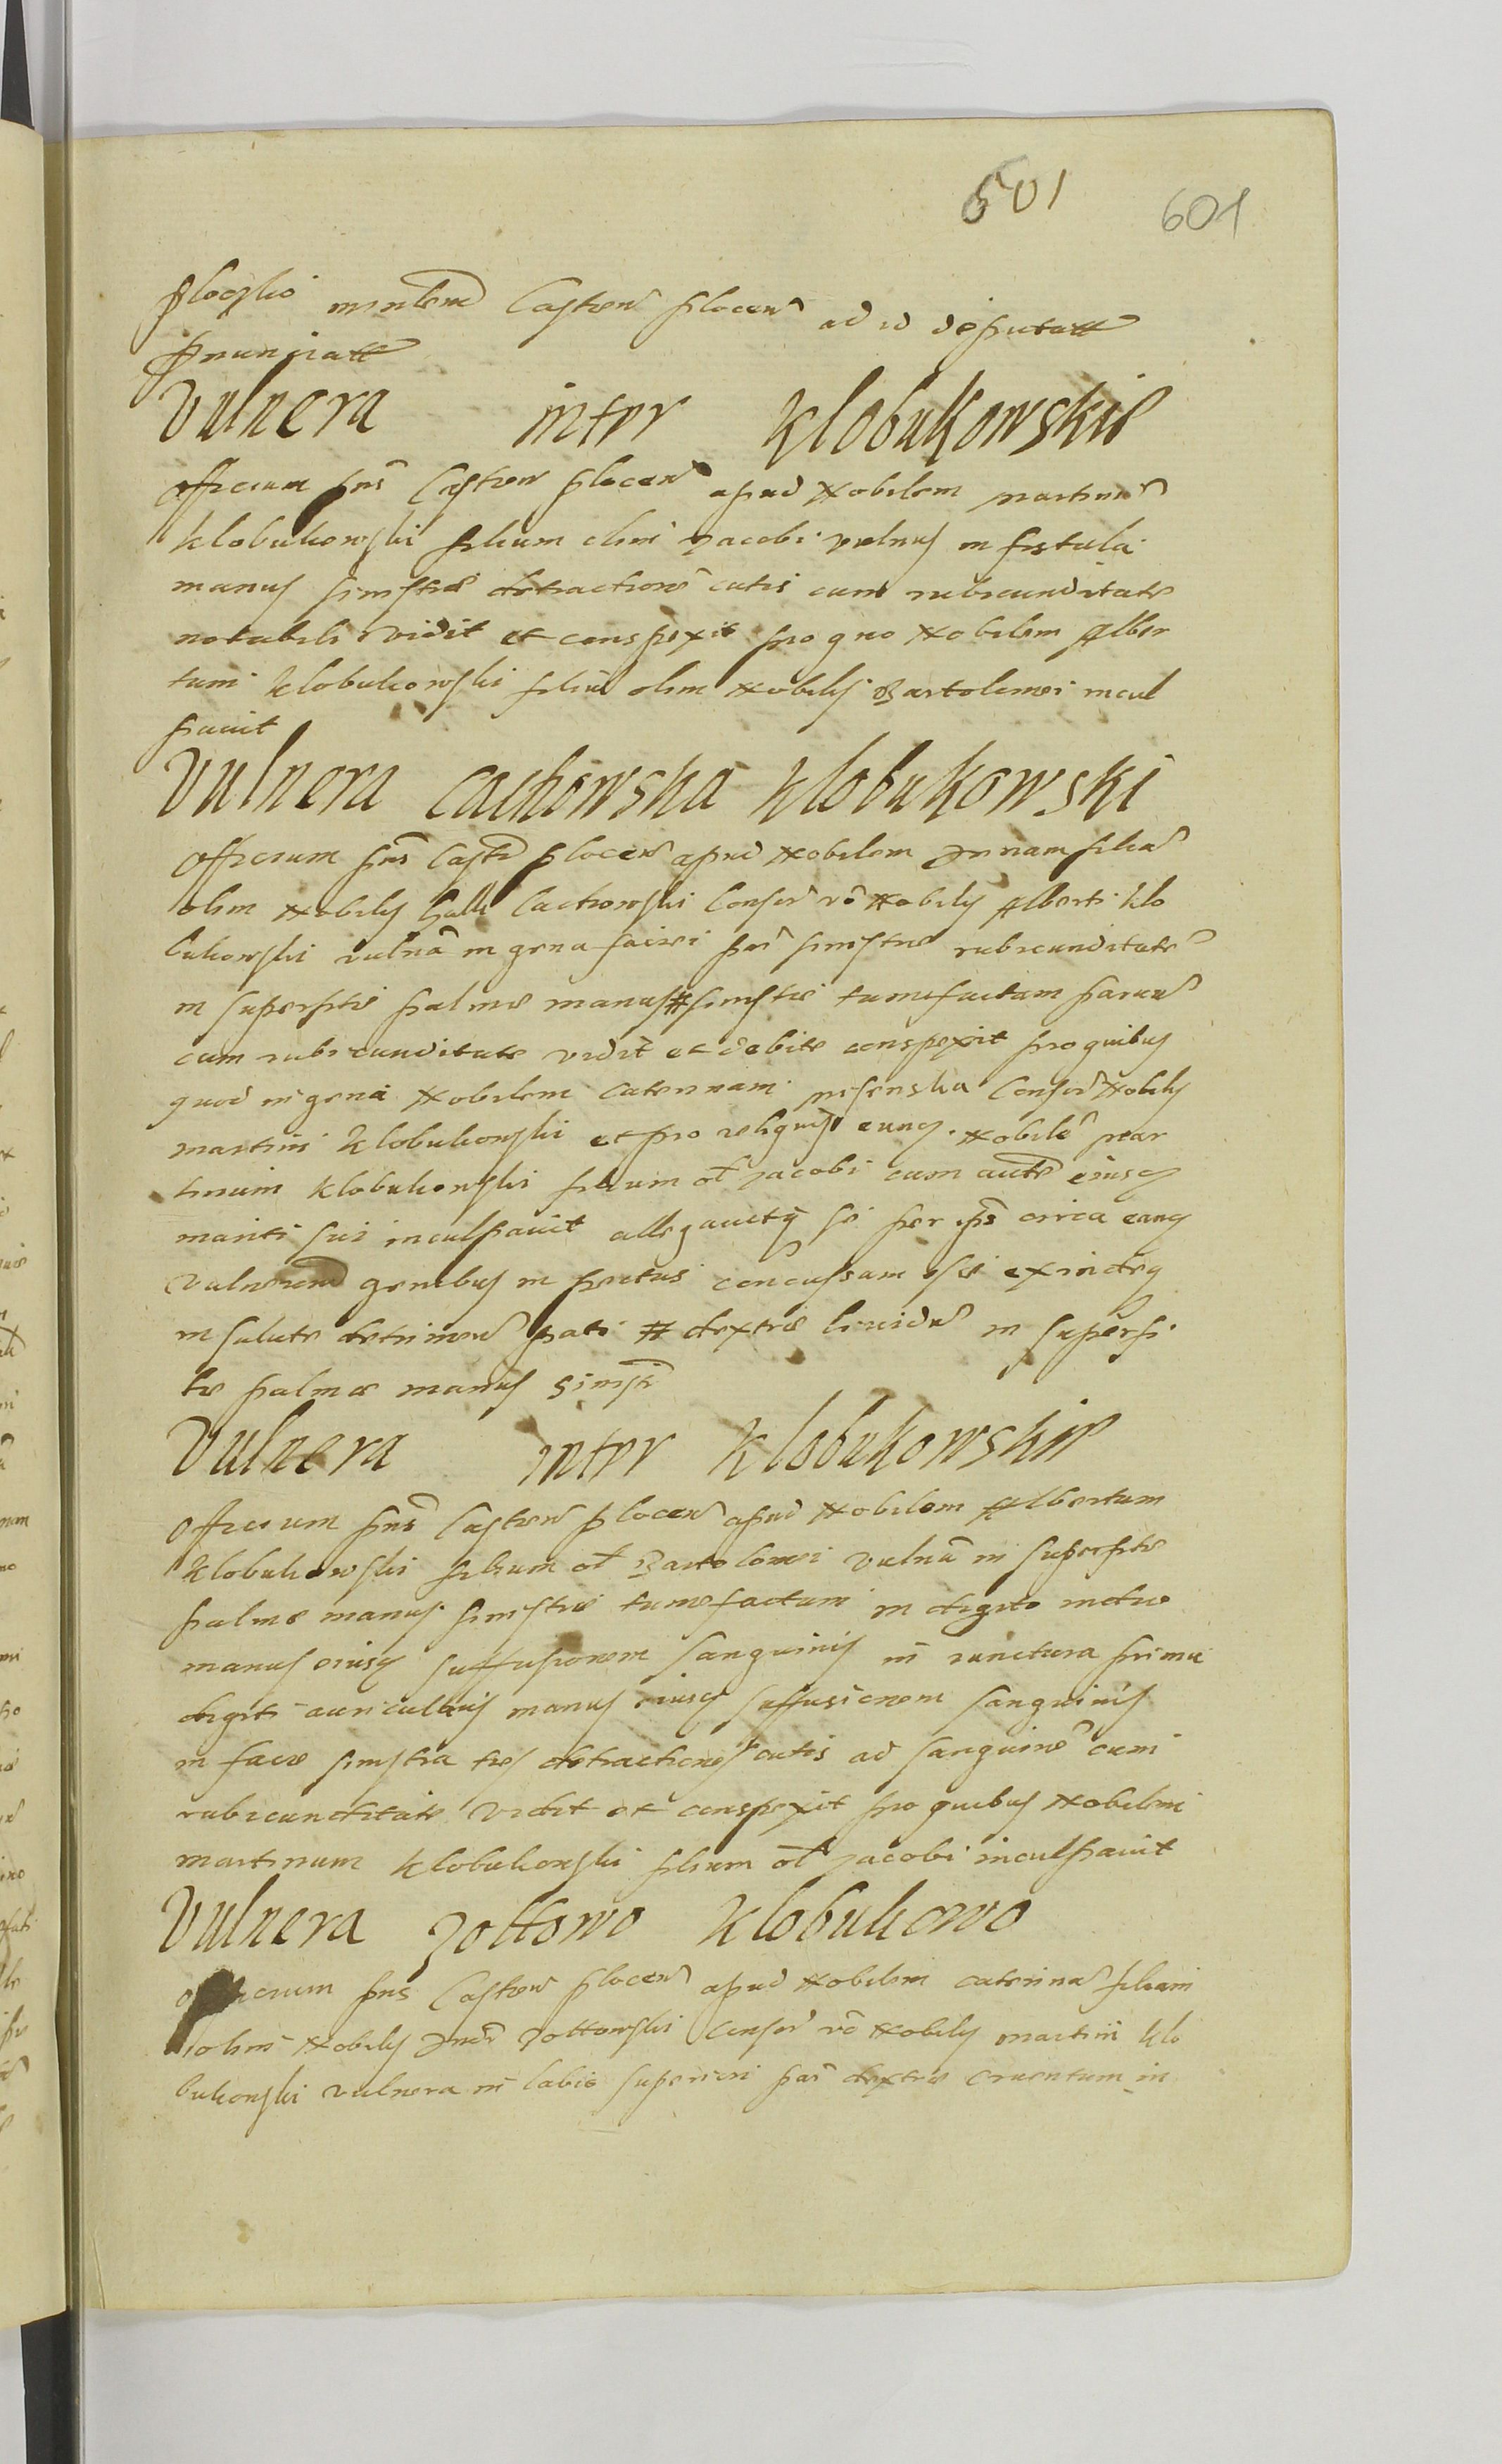 501 601
ministeriale Castren Plocen ad id deputatt
pnunciatt
Vulnera inter Klobukowskie
Officium pns Castren Plocen apud Nobilem Martinu
Klobukowski filium olim Jacobi vulnus in fistula
manus sinistre detractione cutis cum rubicunditate
notabili vidit et conspexit pro quo Nobilem Alber
tum Klobukowski filiu olim Nobilis Bartolomei incul
pavit
Vulnera Cachowska Klobukowski
Officium pns Castr Plocen apud Nobilem Annam filia
olim Nobilis Galli Cachowski Consor vo Nobilis Alberti Klo
bukowski vulna in gena faciei par sinistre rubicunditate
in superfitie palme manus # sinistre tumefactam parum
cum rubicunditate vidit et debite conspexit pro quibus
quod in gena Nobilem Caterinam Consor Nobilis
Martini Klobukowski et pro reliquis eunq Nobile Mar
tinum Klobukowski filium ol Jacobi cum aucte eiusq
mariti sui inculpavit allegavitq se per ips circa eanq
vulneracione genibus in pectus concussam esse exindeq
in salute detrimen pati # dextre lividu in superfi
tie palme manus sinistr
Vulnera inter Klobukowskie
Officium pns Castren Plocen apud Nobilem Albertum
Klobukowski filium ol Bartolomei vulnera in superfitie
palme manus sinistre tumefactam in digito indice
manus eiusq suffusionem sanguinis in iunctura prima
digiti auricularis manus eiusq suffusionem sanguinis
in facie sinistra tres detractiones cutis ad sanguine cum
rubicunditate vidit et conspexit pro quibus Nobilem
Martinum Klobukowski filium ol Jacobi inculpavit
Vulnera Zoltowo Klobukowo
Officium pns Castren Plocen apud Nobilem Caterina filiam
olim Nobilis Zoltowski Consor vo Nobilis Martini Klo
bukowski vulnera in labio superiori par dextre cruentum in